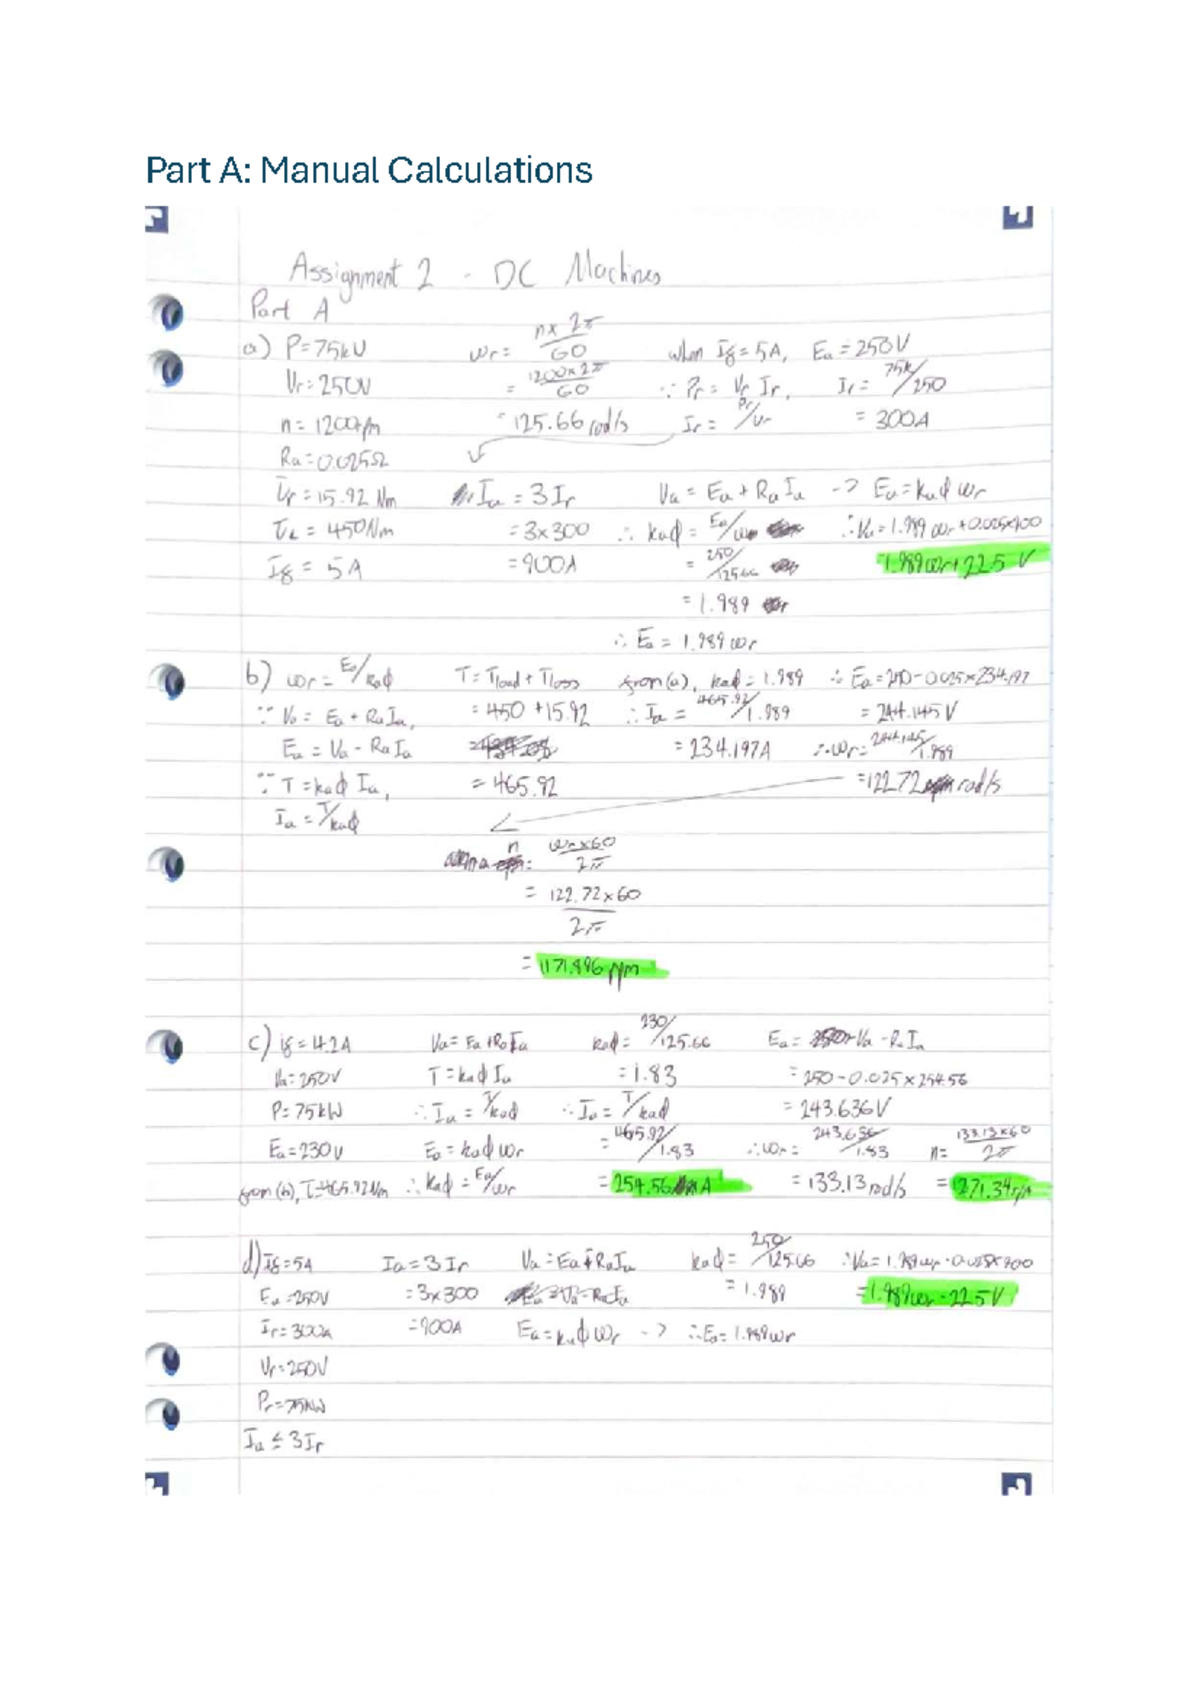 Part A: Manual Calculations
Assignment 2 - DC Machines
Part A
a) P=75kW
Vr=250V
n=1200rpm
Ra=0.025Ω
Tr=15.92 Nm
TL=450Nm
If = 5A
ωr= n×2π/60
= 1200×2π/60
=125.66 rad/s
when If=5A, Ea=250V
∵ Pr= Vr Ir, Ir= 75k/250
Ir= Pr/Vr = 300A
Ia = 3Ir
=3×300
=900A
Va = Ea+RaIa -> Ea=kaϕ ωr
∴ kaϕ = Ea/ωr
= 250/125.66
= 1.989
∴ Ea = 1.989ωr
∴Va=1.989ωr+0.025×900
=1.989ωr+22.5 V
b) ωr= Ea/kaϕ
∵ Va= Ea+RaIa,
Ea = Va-RaIa
∵ T=kaϕ Ia,
Ia = T/kaϕ
T=Tload+Tloss
=450+15.92
= 465.92
from (a), kaϕ=1.989
∴ Ia = 465.92/1.989
=234.197A
∴ Ea=250-0.025×234.197
= 244.145V
∴ωr= 244.145/1.989
=122.72 rad/s
n = ωr×60/2π
= 122.72×60/2π
= 1171.896 rpm
c) if=4.2A
Va=250V
P=75kW
Ea=230V
from (b), T=465.92Nm
Va= Ea+RaIa
T=kaϕ Ia
∴ Ia = T/kaϕ
Ea=kaϕ ωr
∴ kaϕ= Ea/ωr
kaϕ= 230/125.66
=1.83
∴ Ia= T/kaϕ
= 465.92/1.83
=254.56 A
Ea= Va-RaIa
=250-0.025×254.56
=243.636V
∴ωr= 243.636/1.83
=133.13rad/s
n= 133.13×60/2π
=1271.34rpm
d) If=5A
Ea=250V
Ir=300A
Vr=250V
Pr=75kW
Ia ≤ 3Ir
Ia=3Ir
=3×300
=900A
Ea=kaϕ ωr -> ∴Ea=1.989ωr
kaϕ= 250/125.66
= 1.989
∴Va=1.989ωr-0.025×900
=1.989ωr-22.5V